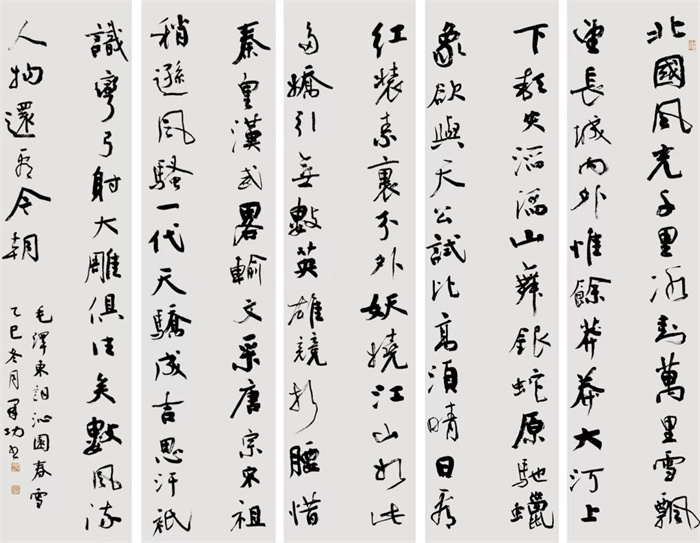 北國風光千里冰封萬里雪飄
望長城内外惟餘莽莽大河上
下頓失滔滔山舞銀蛇原馳蠟
象欲與天公試比高須晴日看
红裝素裹分外妖嬈江山如此
多嬌引無數英雄競折腰惜
秦皇漢武畧輸文采唐宗宋祖
稍遜風騷一代天驕成吉思汗祇
識彎弓射大雕俱往矣數風流
人物還看今朝
毛澤東詞沁園春雪
乙巳冬月功书